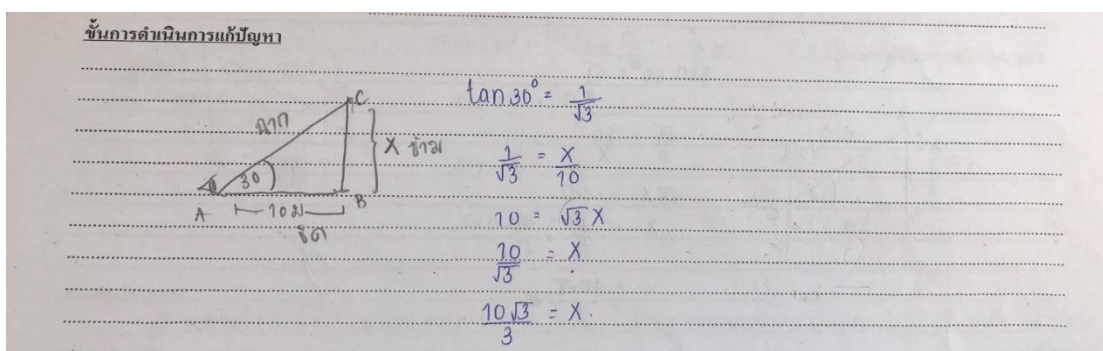 ขั้นการดำเนินการแก้ปัญหา
C
ฉาก
X ข้าม
30
A
10 ม
B
ชิด
tan 30° = 1/√3
1/√3 = X/10
10 = √3 X
10/√3 = X
10√3/3 = X.